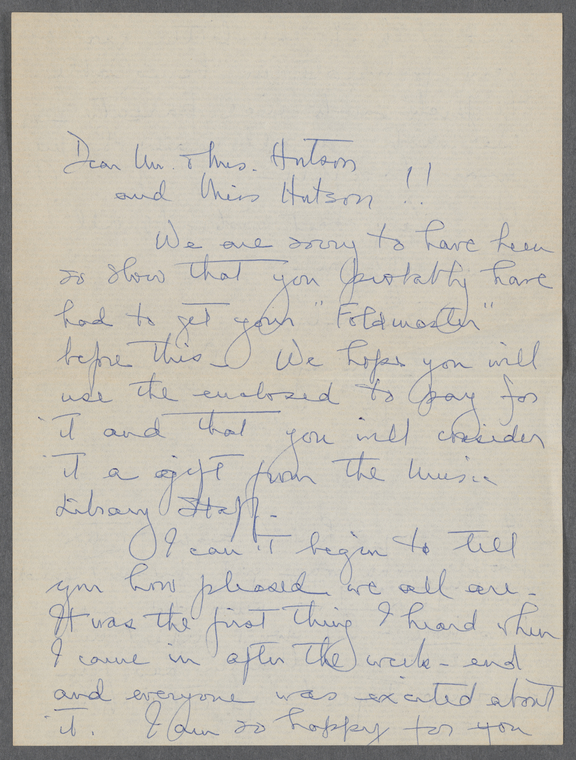 Dear Mr. & Mrs. Hutson
and Miss Hutson !!
We are sorry to have been
so slow that you probably have
had to get your "Foldmaster"
before this - We hope you will
use the enclosed to pay for
it and that you will consider
it a gift from the Music
Library Staff -
I can't begin to tell
you how pleased we all are -
It was the first thing I heard when
I came in after the week-end
and everyone was excited about
it. I am so happy for you